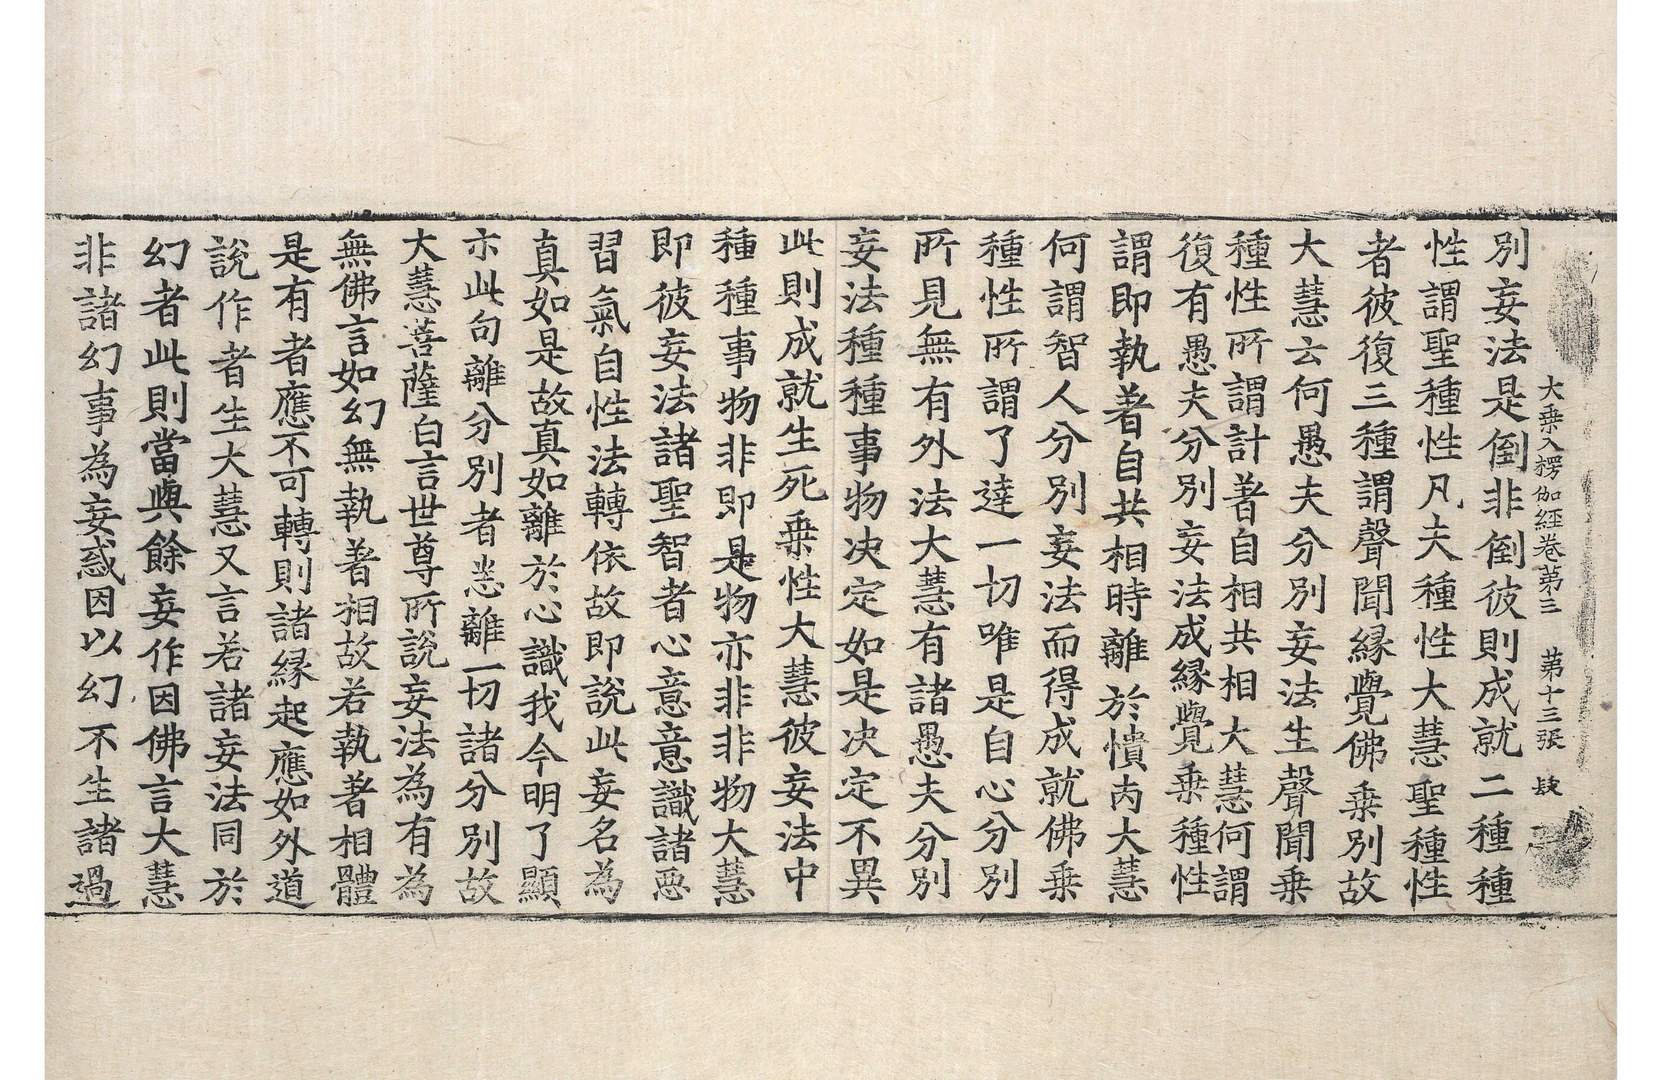 大乗入楞伽経卷苐三　苐十三張　肢
別妄法是倒非倒彼則成就二種種
性謂聖種性凡夫種性大慧聖種性
者彼復三種謂聲聞縁覺佛乗別故
大慧云何愚夫分別妄法生聲聞乗
種性所謂計著自相共相大慧何謂
復有愚夫分別妄法成縁覺乗種性
謂即執著自共相時離於憒丙大慧
何謂智人分別妄法而得成就佛乗
種性所謂了達一切唯是自心分別
所見無有外法大慧有諸愚夫分別
妄法種種事物决定如是决定不異
此則成就生死乗性大慧彼妄法中
種種事物非即是物亦非非物大慧
即彼妄法諸聖智者心意意識諸惡
習氣自性法轉依故即說此妄名為
真如是故真如離於心識我今明了顯
示此句離分別者悉離一切諸分別故
大慧菩薩白言世尊所說妄法為有為
無佛言如幻無執著相故若執著相體
是有者應不可轉則諸縁起應如外道
說作者生大慧又言若諸妄法同於
幻者此則當與餘妄作因佛言大慧
非諸幻事為妄惑因以幻不生諸過